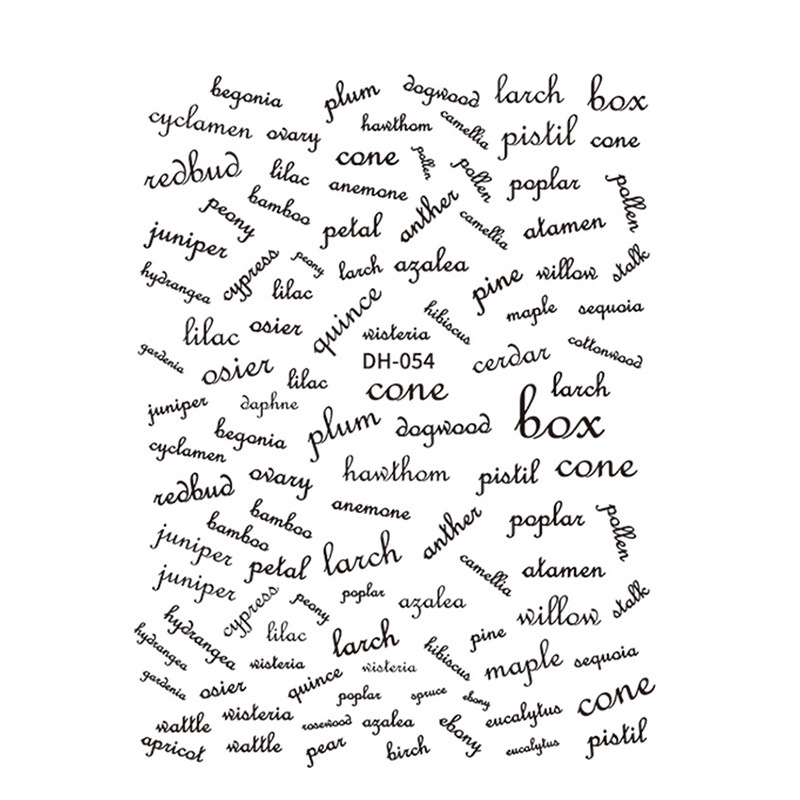 begonia plum dogwood larch box
cyclamen ovary hawthom camellia pistil cone
redbud lilac cone pollen pollen poplar pollen
bamboo anemone
peony petal anther camellia atamen
juniper cypress peony larch azalea pine willow stalk
hydrangea lilac quince hibiscus maple sequoia
lilac osier wisteria
gardenia osier DH-054 cerdar cottonwood
lilac cone larch
juniper daphne box
begonia plum dogwood
cyclamen ovary hawthom pistil cone
redbud anemone
bamboo bamboo anther poplar pollen
juniper petal larch camellia atamen
juniper cypress peony poplar azalea willow stalk
hydrangea lilac larch pine
hydrangea wisteria wisteria hibiscus maple sequoia
gardenia osier quince poplar spruce ebony cone
wattle wisteria rosewood azalea ebony eucalytus
apricot wattle pear birch eucalytus pistil